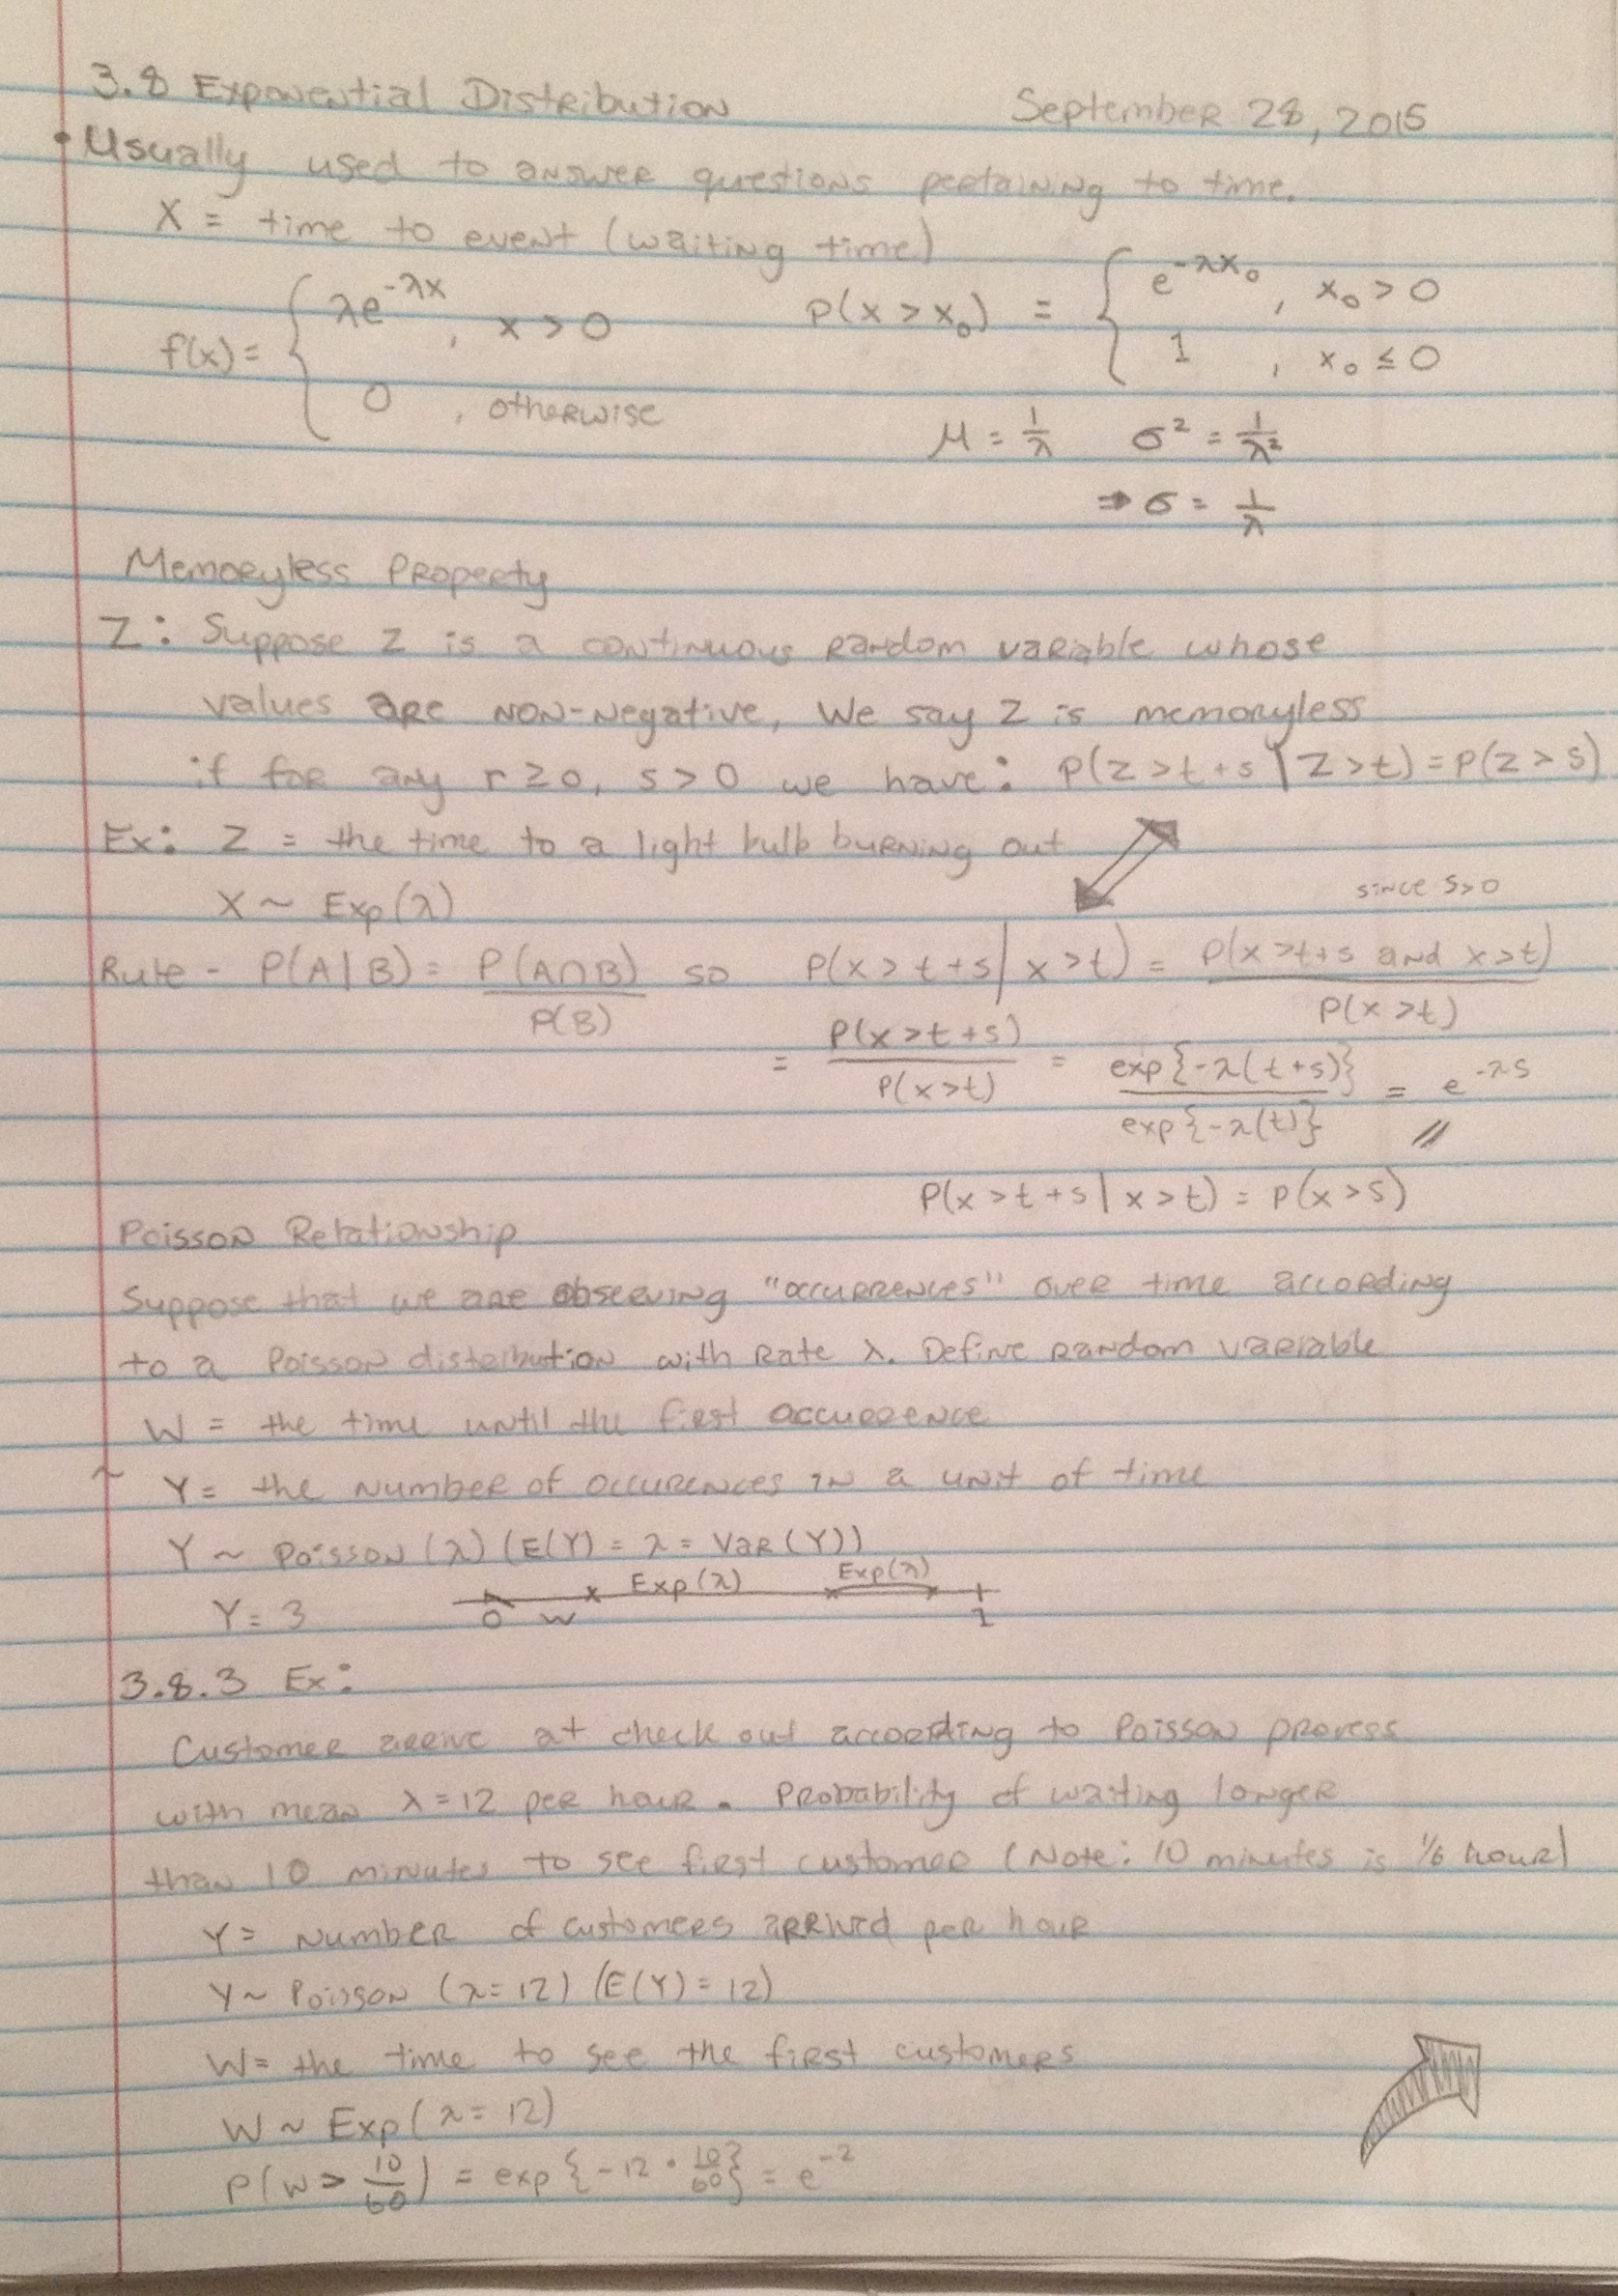 3.8 Exponential Distribution September 28, 2015
• Usually used to answer questions pertaining to time.
X = time to event (waiting time)
f(x) = { λe^-λx , x > 0
0 , otherwise
P(x > x₀) = { e^-λx₀ , x₀ > 0
1 , x₀ ≤ 0
μ = 1/λ σ² = 1/λ²
⇒ σ = 1/λ
Memoryless Property
Z: Suppose Z is a continuous random variable whose
values are non-negative, We say Z is memoryless
if for any r ≥ 0, s > 0 we have: P(Z > t+s | Z > t) = P(Z > s)
Ex: Z = the time to a light bulb burning out
X ~ Exp(λ)
since s>0
Rule - P(A|B) = P(A∩B)/P(B) so P(x > t+s | x > t) = P(x > t+s and x > t)/P(x > t)
= P(x > t+s)/P(x > t) = exp{-λ(t+s)}/exp{-λ(t)} = e^-λs //
P(x > t+s | x > t) = P(x > s)
Poisson Relationship
Suppose that we are observing "occurrences" over time according
to a Poisson distribution with rate λ. Define random variable
W = the time until the first occurrence
~ Y = the number of occurences in a unit of time
Y ~ Poisson (λ) (E(Y) = λ = Var(Y))
Y = 3 0 W Exp(λ) Exp(λ) 1
3.8.3 Ex:
Customer arrive at check out according to Poisson process
with mean λ = 12 per hour. Probability of waiting longer
than 10 minutes to see first customer (Note: 10 minutes is 1/6 hour)
Y = Number of customers arrived per hour
Y ~ Poisson (λ = 12) (E(Y) = 12)
W = the time to see the first customers
W ~ Exp(λ = 12)
P(W > 10/60) = exp{-12 · 10/60} = e^-2